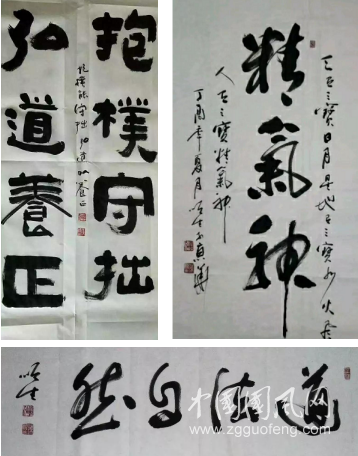 抱樸守拙
弘道養正
抱樸能守拙弘道以養正
天有三寶日月星地有三寶水火風
精氣神
人有三寶精氣神
丁酉年夏月
道法自然
中国国风网
www.zgguofeng.com